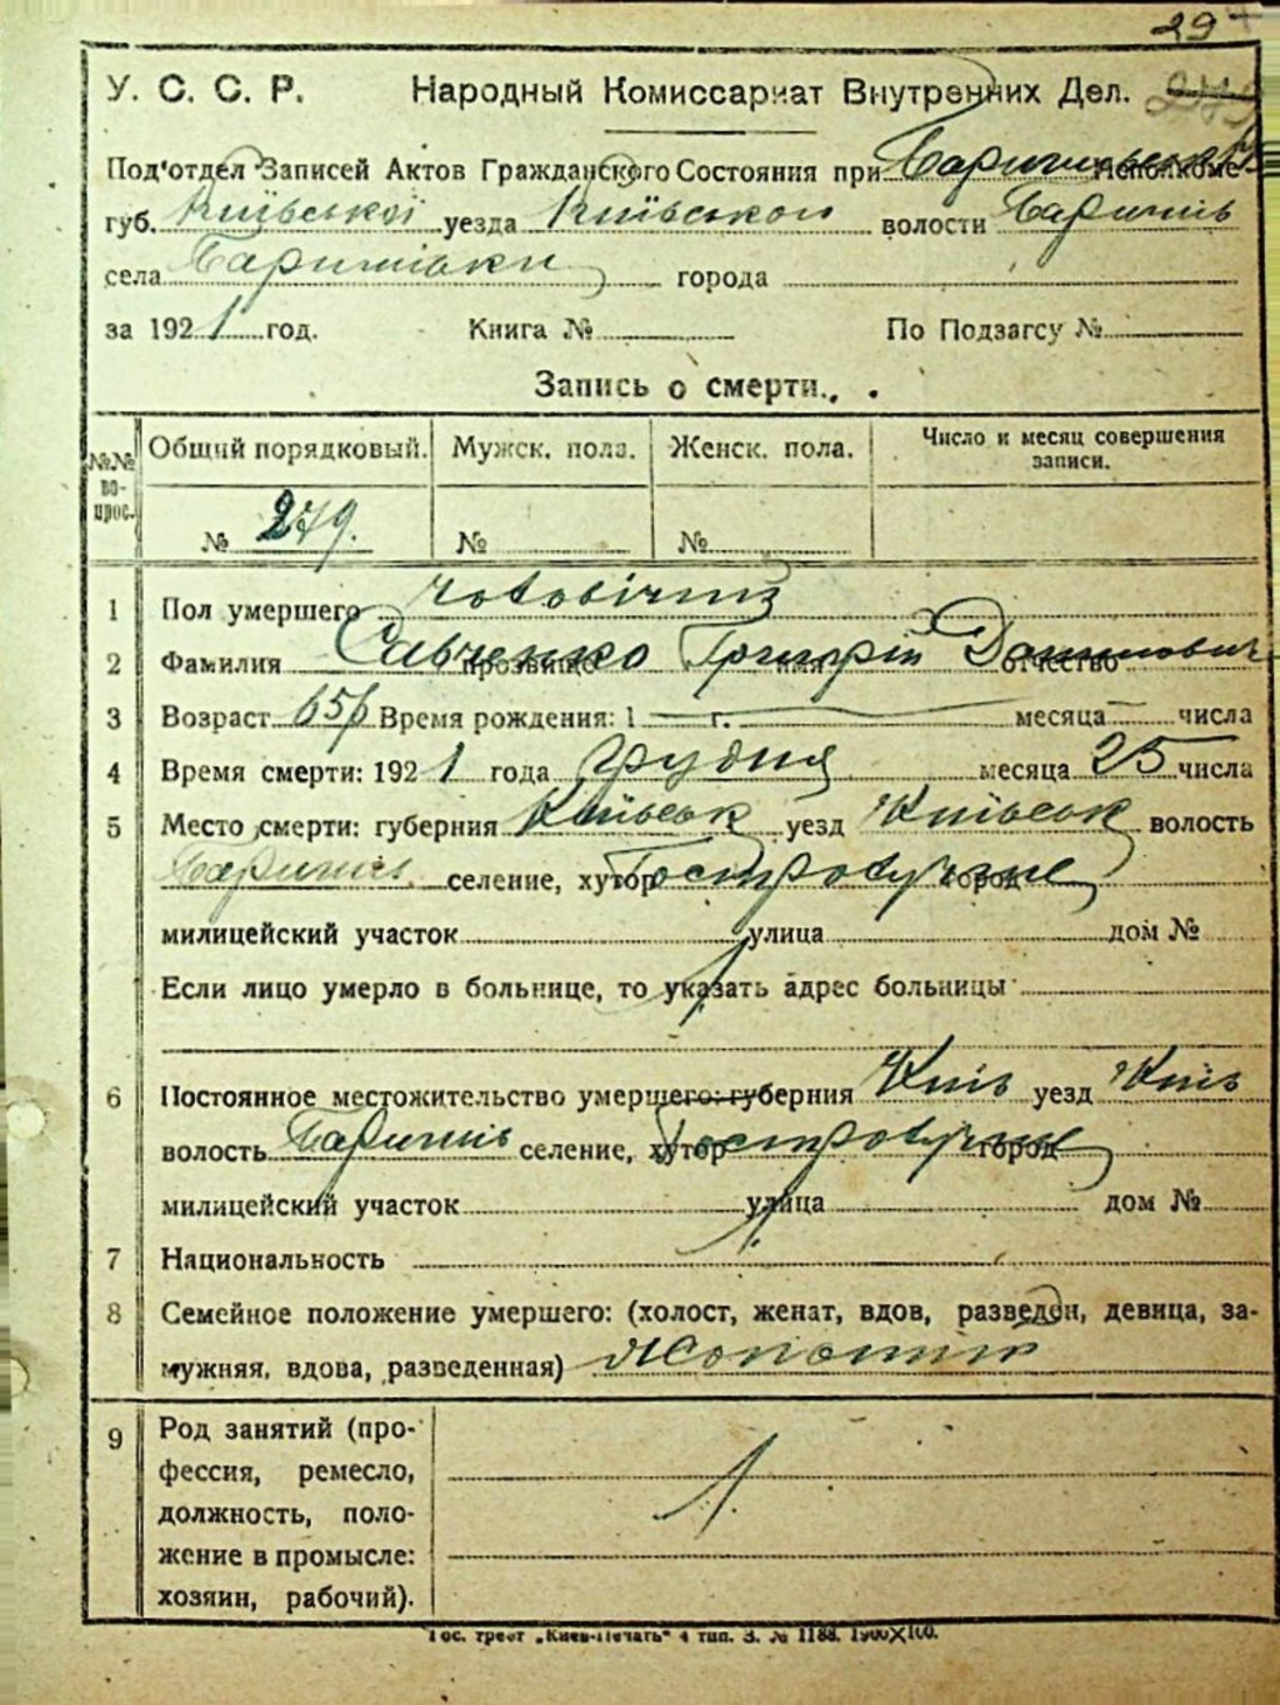 29
У. С. С. Р. Народный Комиссариат Внутренних Дел.
Под'отдел Записей Актов Гражданского Состояния при Исполкоме
губ. Київської уезда Київського волости Баришів
села Баришівки города
за 1921 год. Книга № По Подзагсу №
Запись о смерти.
№№ вопрос. Общий порядковый. Мужск. пола. Женск. пола. Число и месяц совершения записи.
№ 279. № №
1 Пол умершего чоловічий
2 Фамилия Савченко прозвище Григорій имя Данилович отчество
3 Возраст 65 р Время рождения: 1 — г. месяца числа
4 Время смерти: 1921 года грудня месяца 25 числа
5 Место смерти: губерния Київськ уезд Київськ волость
Баришів селение, хутор Гостролуччє город
милицейский участок улица дом №
Если лицо умерло в больнице, то указать адрес больницы
6 Постоянное местожительство умершего: губерния Київ уезд Київ
волость Баришів селение, хутор Гостролуччє город
милицейский участок улица дом №
7 Национальность
8 Семейное положение умершего: (холост, женат, вдов, разведен, девица, за-
мужняя, вдова, разведенная) жонатий
9 Род занятий (про-
фессия, ремесло,
должность, поло-
жение в промысле:
хозяин, рабочий).
Гос. трест „Киев-Печать" 4 тип. З. № 1188. 1900×100.